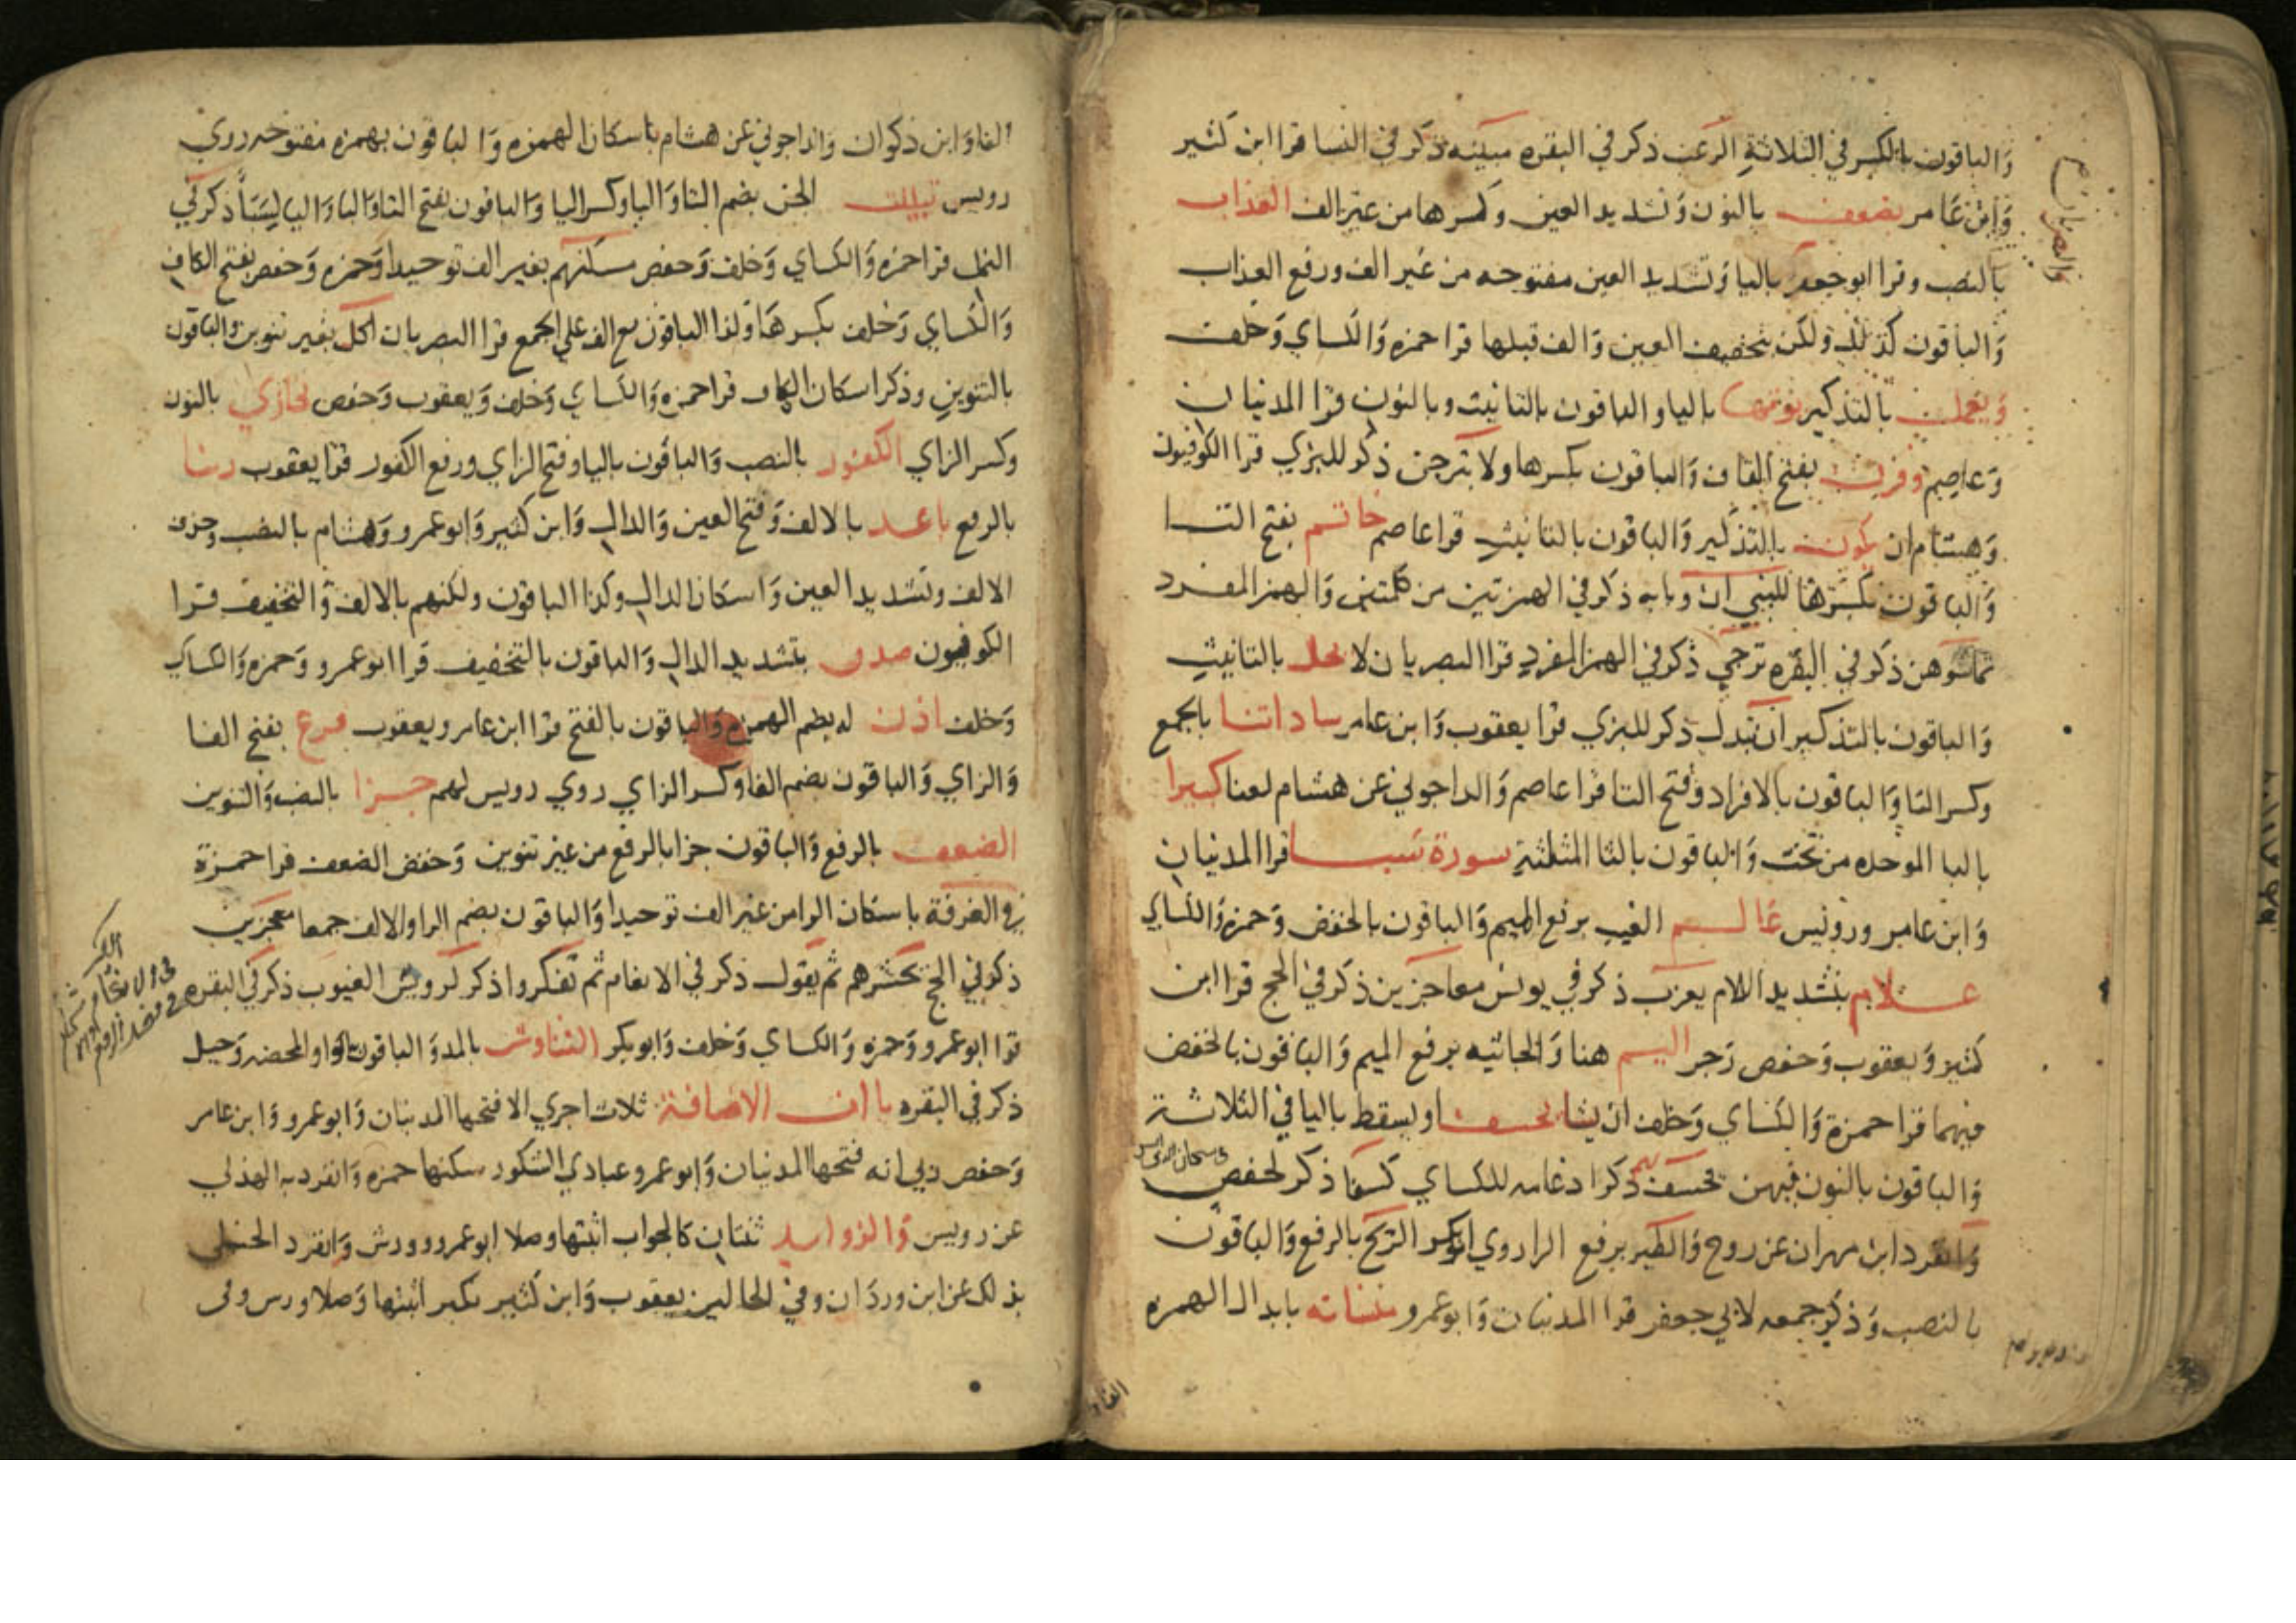 والباقون بالكسر في الثلاثة الرعب ذكر في البقره مبينه ذكر في النسا قرا ابن كثير
وابن عامر نضعف بالنون وتشديد العين وكسرها من غير الف العذاب
بالنصب وقرا ابو جعفر باليا وتشديد العين مفتوحه من غير الف ورفع العذاب
والباقون كذلك ولكن بتخفيف العين والف قبلها قرا حمزه والكساي وخلف
ويعمل بالتذكير يوتها باليا والباقون بالتانيث وبالنون قرا المدنيان
وعاصم وقرن بفتح القاف والباقون بكسرها ولا تبرجن ذكر للبزي قرا الكوفيون
وهشام ان يكون بالتذكير والباقون بالتانيث قرا عاصم خاتم بفتح التا
والباقون بكسرها للنبي ان وبابه ذكر في الهمزتين من كلمتين والهمز المفرد
تماسوهن ذكر في البقره ترجي ذكر في الهمز المفرد قرا البصريان لا تحل بالتانيث
والباقون بالتذكير ان تبدل ذكر للبزي قرا يعقوب وابن عامر ساداتنا بالجمع
وكسر التا والباقون بالافراد وفتح التا قرا عاصم والداجوني عن هشام لعنا كبيرا
بالبا الموحده من تحت والباقون بالثا المثلثة سورة سبا قرا المدنيان
وابن عامر ورويس عالم الغيب برفع الميم والباقون بالخفض وحمزه والكساي
علام بتشديد اللام يعزب ذكر في يونس معاجزين ذكر في الحج قرا ابن
كثير ويعقوب وحفص رجز اليم هنا والجاثيه برفع الميم والباقون بالخفض
فيهما قرا حمزة والكساي وخلف ان يشا يخسف او يسقط باليا في الثلاثة
والباقون بالنون فيهن يخسف بهم ذكر ادغامه للكساي كسفا ذكر لحفص
وانفرد ابن مهران عن روح والطير برفع الرا روي ابو بكر الريح بالرفع والباقون
بالنصب وذكر جمعه لابي جعفر قرا المدنيان وابو عمرو منساته بابدال الهمزه
الفا وابن ذكوان والداجوني عن هشام باسكان الهمزه والباقون بهمزه مفتوحه روي
رويس تبينت الجن بضم التا والبا وكسر اليا والباقون بفتح التا والبا واليا لسبأ ذكر في
النمل قرا حمزه والكساي وخلف وحفص مسكنهم بغير الف توحيدا وحمزه وحفص بفتح الكاف
والكساي وخلف بكسرها وكذا الباقون مع الف على الجمع قرا البصريان اكل بغير تنوين والباقون
بالتنوين وذكر اسكان الكاف قرا حمزه والكساي وخلف ويعقوب وحفص نجازي بالنون
وكسر الزاي الكفور بالنصب والباقون باليا وفتح الزاي ورفع الكفور قرا يعقوب ربنا
بالرفع باعد بالالف وفتح العين والدال وابن كثير وابو عمرو وهشام بالنصب وحذف
الالف وتشديد العين واسكان الدال وكذا الباقون ولكنهم بالالف والتخفيف قرا
الكوفيون صدق بتشديد الدال والباقون بالتخفيف قرا ابو عمرو وحمزه والكساي
وخلف اذن له بضم الهمزه والباقون بالفتح قرا ابن عامر ويعقوب فزع بفتح الفا
والزاي والباقون بضم الفا وكسر الزاي روي رويس لهم جزا بالنصب والتنوين
الضعف بالرفع والباقون جزا بالرفع من غير تنوين وخفض الضعف قرا حمزة
في الغرفة باسكان الرا من غير الف توحيدا والباقون بضم الرا والالف جمعا معجزين
ذكر في الحج نحشرهم ثم يقول ذكر في الانعام ثم تفكروا ذكر لرويس الغيوب ذكر في البقره
قرا ابو عمرو وحمزه والكساي وخلف وابو بكر التناوش بالمد والباقون بالواو المحضه وحيل
ذكر في البقره ياات الاضافة ثلاث اجري الا فتحها المدنيان وابو عمرو وابن عامر
وحفص ربي انه فتحها المدنيان وابو عمرو عبادي الشكور سكنها حمزه وانفرد به الهذلي
عن رويس والزوايد ثنتان كالجواب اثبتها وصلا ابو عمرو وورش وانفرد الحنبلي
بذلك عن ابن وردان وفي الحالين يعقوب وابن كثير نكير اثبتها وصلا ورش وفي